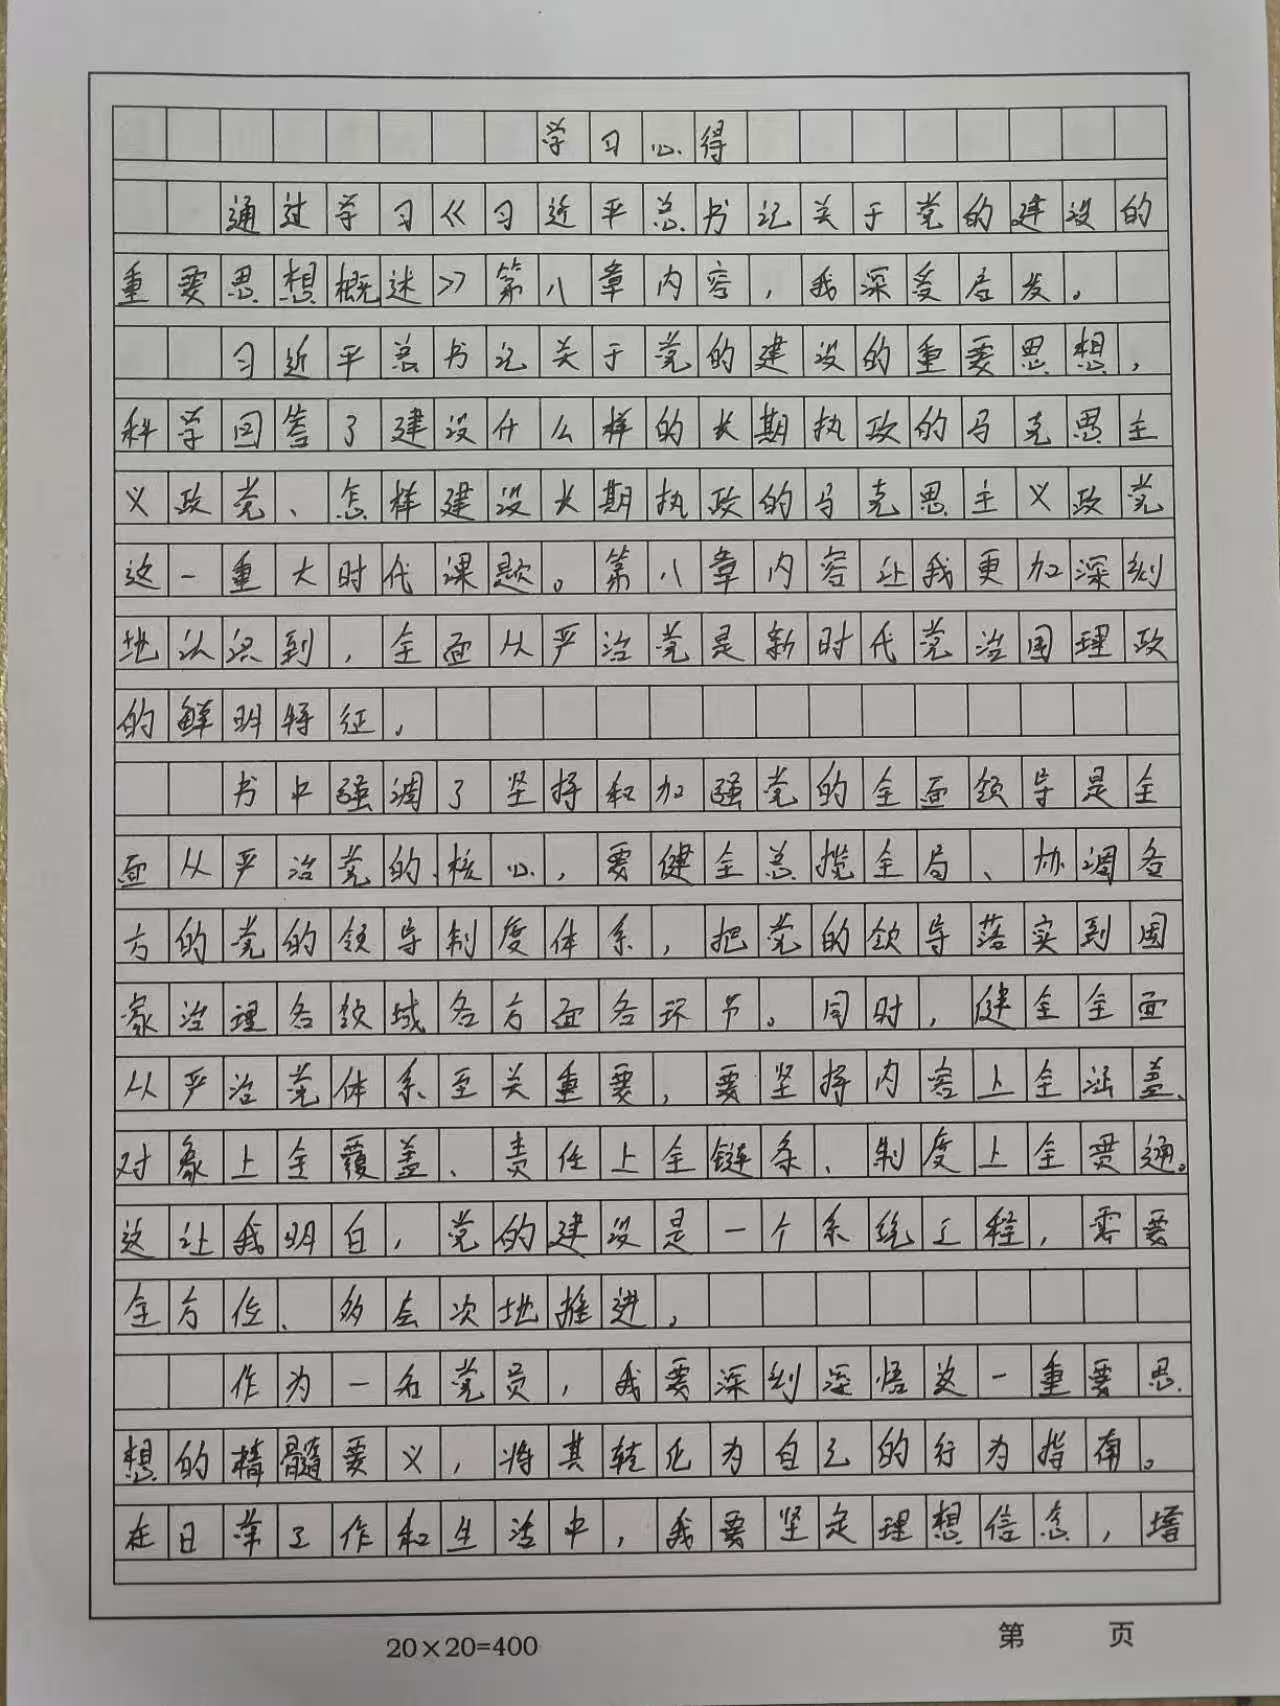 学习心得
通过学习《习近平总书记关于党的建设的
重要思想概述》第八章内容，我深受启发。
习近平总书记关于党的建设的重要思想，
科学回答了建设什么样的长期执政的马克思主
义政党、怎样建设长期执政的马克思主义政党
这一重大时代课题。第八章内容让我更加深刻
地认识到，全面从严治党是新时代党治国理政
的鲜明特征。
书中强调了坚持和加强党的全面领导是全
面从严治党的核心，要健全总揽全局、协调各
方的党的领导制度体系，把党的领导落实到国
家治理各领域各方面各环节。同时，健全全面
从严治党体系至关重要，要坚持内容上全涵盖、
对象上全覆盖、责任上全链条、制度上全贯通。
这让我明白，党的建设是一个系统工程，需要
全方位、多层次地推进。
作为一名党员，我要深刻深悟这一重要思
想的精髓要义，将其转化为自己的行为指南。
在日常工作和生活中，我要坚定理想信念，增
20×20=400
第 页